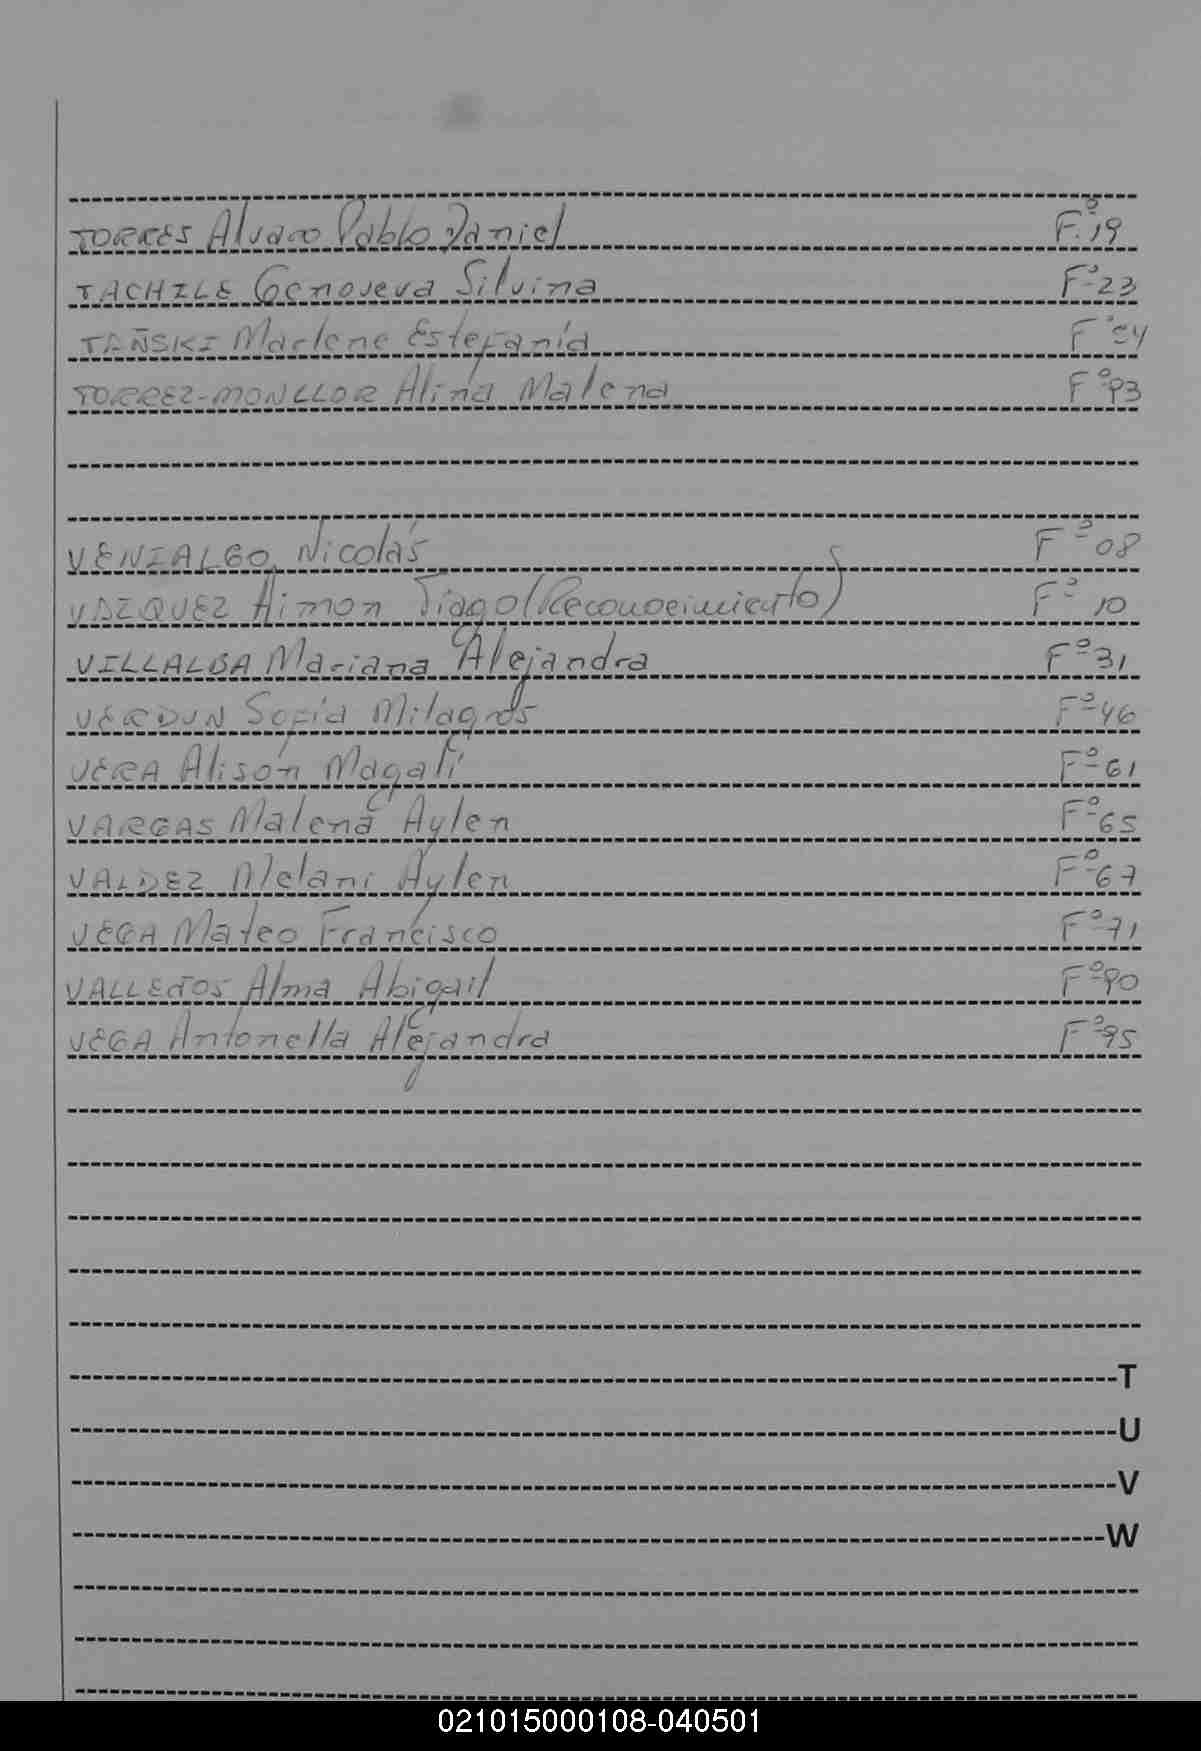 TORRES Alvaro Pablo Daniel F.º19
TACHILE Genoveva Silvina Fº23
TAÑSKI Marlene Estefanía Fº
TORREZ-MONLLOR Alina Malena Fº93
VENIALGO Nicolás Fº 08
VAZQUEZ Aimon Tiago (Reconocimiento) Fº 10
VILLALBA Mariana Alejandra Fº31
VERDUN Sofía Milagros Fº46
VERA Alison Magalí Fº61
VARGAS Malena Aylen Fº65
VALDEZ Melani Aylen Fº67
VEGA Mateo Francisco Fº71
VALLEJOS Alma Abigail Fº90
VEGA Antonella Alejandra Fº95
T
U
V
W
021015000108-040501